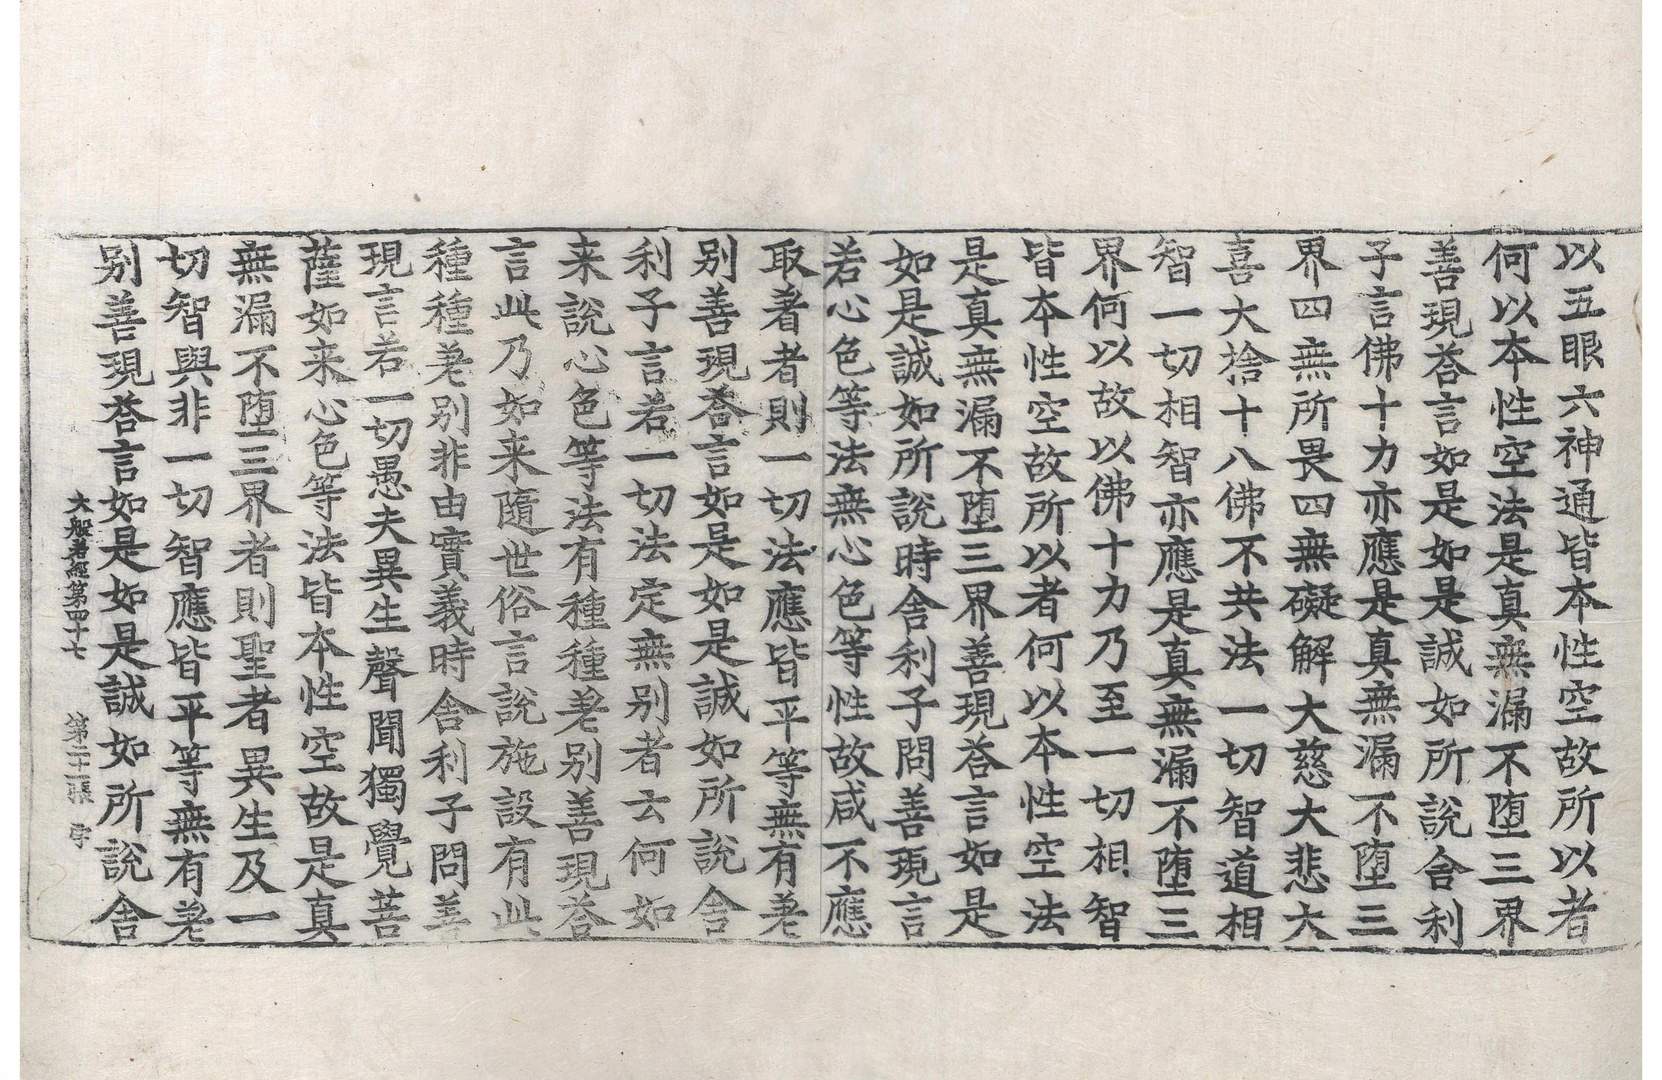 以五眼六神通皆本性空故所以者
何以本性空法是真無漏不堕三界
善現荅言如是如是誠如所說舎利
子言佛十力亦應是真無漏不堕三
界四無所畏四無礙解大慈大悲大
喜大捨十八佛不共法一切智道相
智一切相智亦應是真無漏不堕三
界何以故以佛十力乃至一切相智
皆本性空故所以者何以本性空法
是真無漏不堕三界善現荅言如是
如是誠如所說時舎利子問善現言
若心色等法無心色等性故咸不應
取著者則一切法應皆平等無有差
别善現荅言如是如是誠如所說舎
利子言若一切法定無别者云何如
来說心色等法有種種差别善現荅
言此乃如来隨世俗言說施設有此
種種差别非由實義時舎利子問善
現言若一切愚夫異生聲聞獨覺菩
薩如来心色等法皆本性空故是真
無漏不堕三界者則聖者異生及一
切智與非一切智應皆平等無有差
别善現荅言如是如是誠如所說舎
大般若經第四十七 第二十張 字